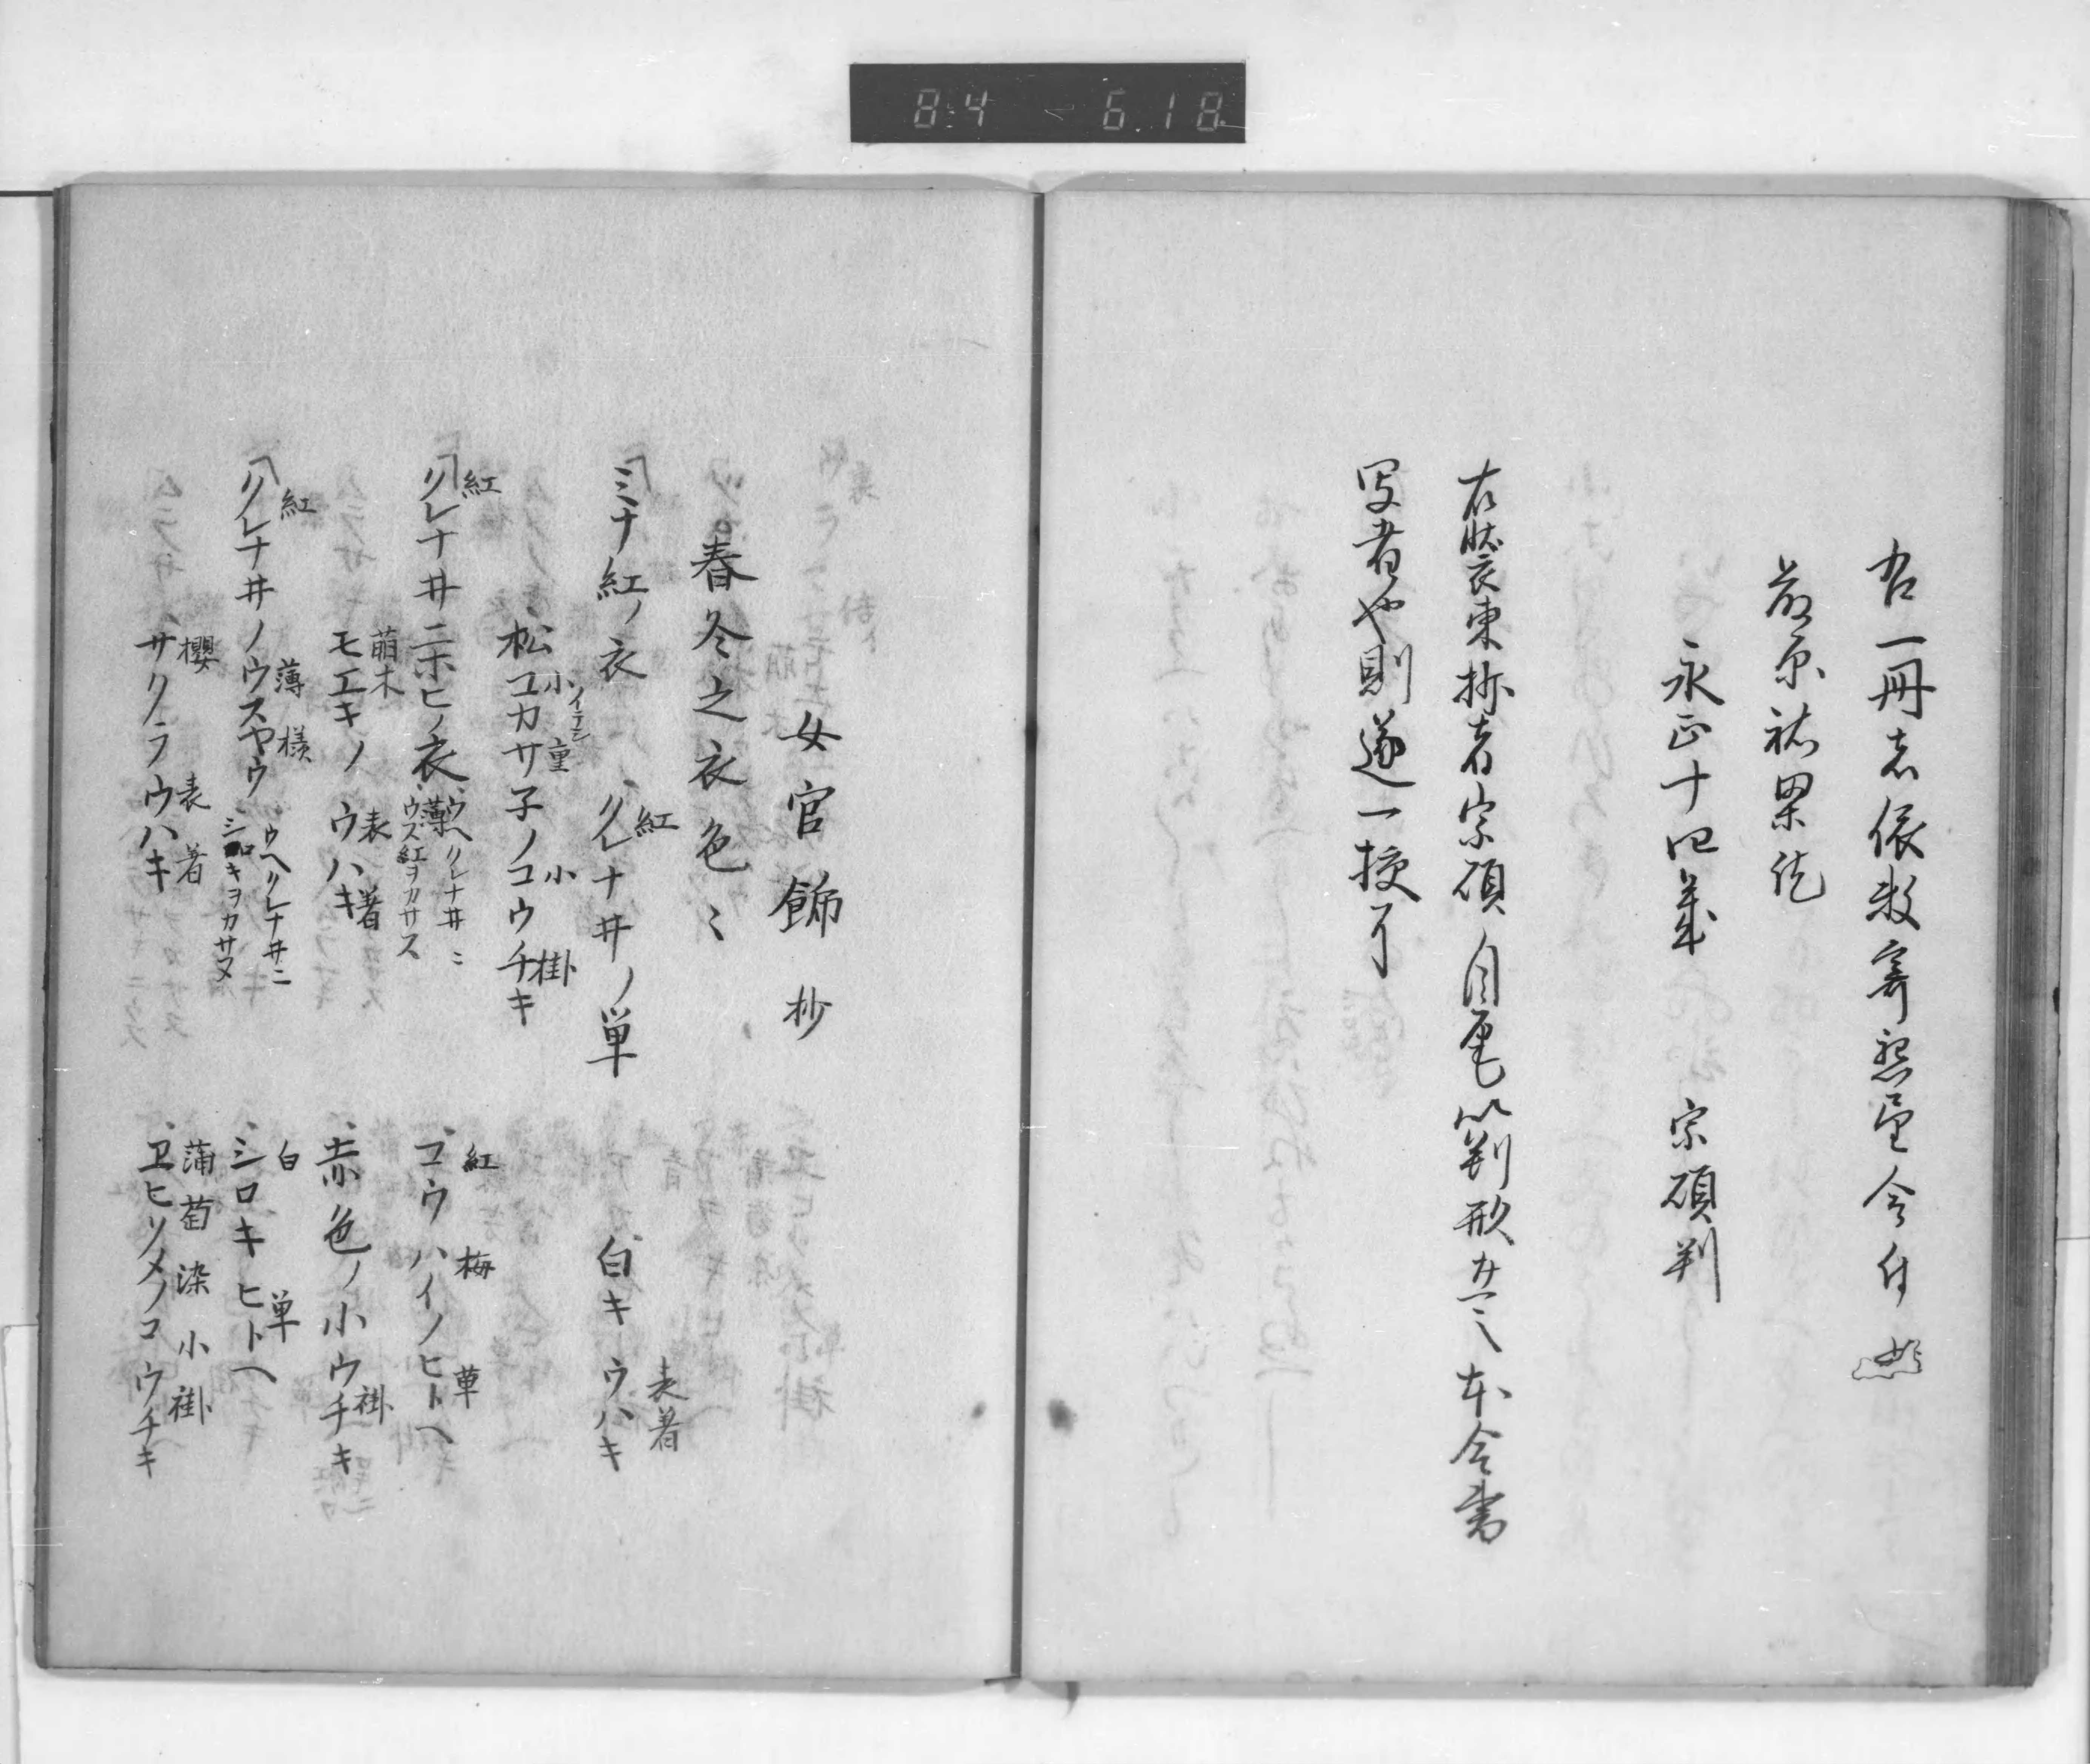 8:4 6.18
右一冊者依数寄懇望令付
藤原祐累訖
永正十四歳 宗碩判
右装束抄者宗碩自筆以判形
本令書
写者也則遂一挍了
女官飾抄
春冬之衣色〻
ミナ紅ノ衣 紅クレナ井ノ単 白キウハキ 表着
松コカサ子ノコウチキ 小 重 小 掛
紅クレナ井ニホヒノ衣 ウヘクレナ井ニ 薄ウス紅ヲカサス コウハイノヒトヘ 紅 梅 単
モエキノウハキ 萌木 表着 赤色ノ小ウチキ 褂
クレナ井ノウスヤウ 紅 薄様 ウヘクレナ井ニシロキヲカサヌ シロキヒトヘ 白 単
サクラウハキ 櫻 表着 ヱヒソメノコウチキ 蒲萄染小褂